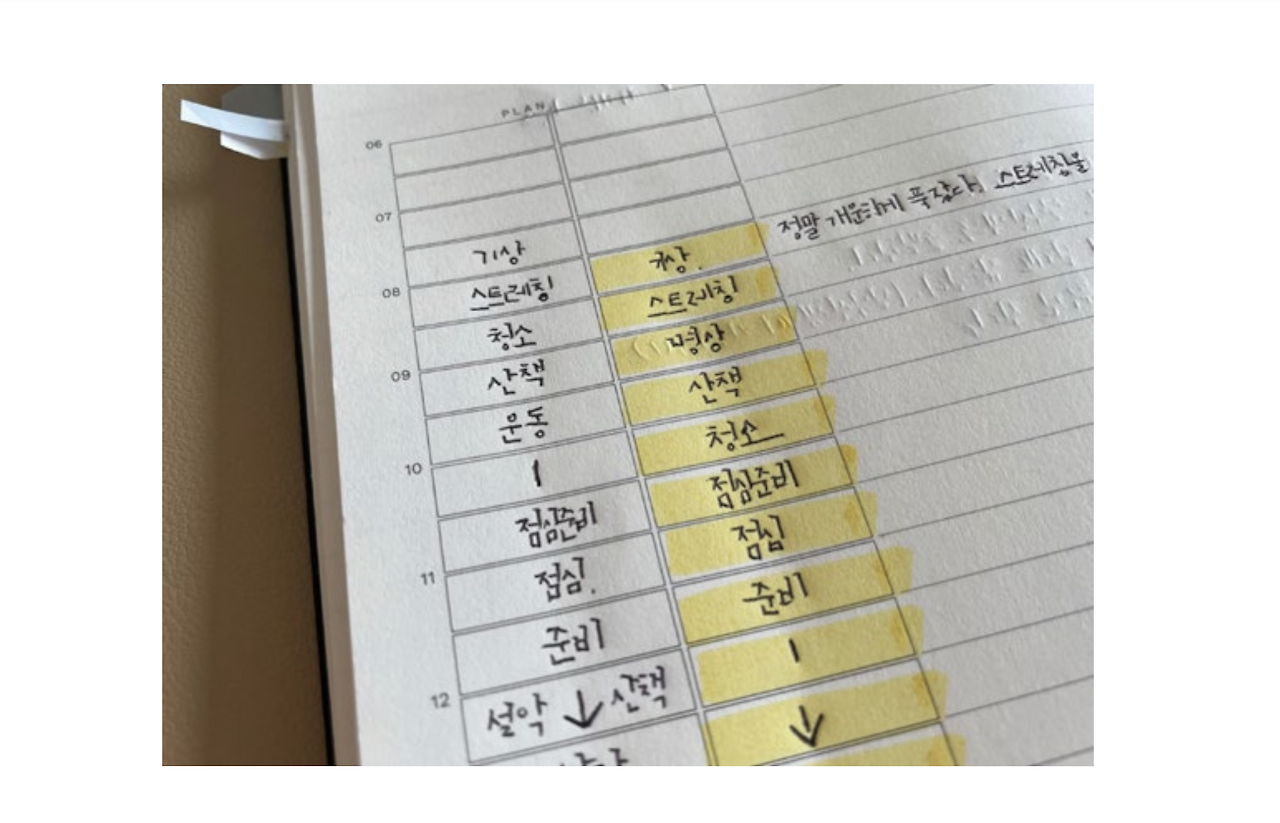 PLAN
06
07
정말 개운하게 푹잤다. 스트레칭을
기상 기상.
08
스트레칭 스트레칭
청소 명상
09
산책 산책
운동 청소
10
점심준비 점심준비
점심. 점심
11
준비 준비
12
산책